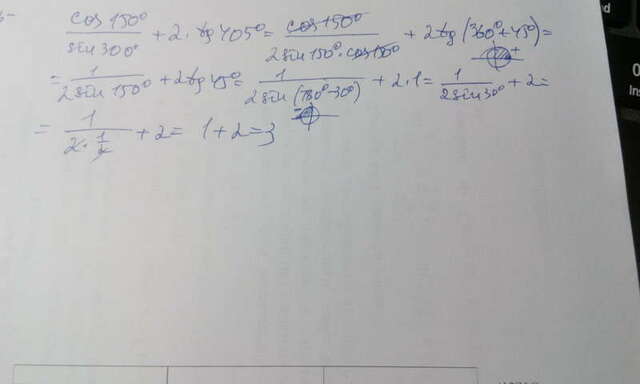 cos 150° / sin 300° + 2·tg 405° = cos 150° / 2 sin 150°·cos 150° + 2 tg (360° + 45°) =
= 1 / 2 sin 150° + 2 tg 45° = 1 / 2 sin (180° - 30°) + 2·1 = 1 / 2 sin 30° + 2 =
= 1 / 2·1/2 + 2 = 1 + 2 = 3